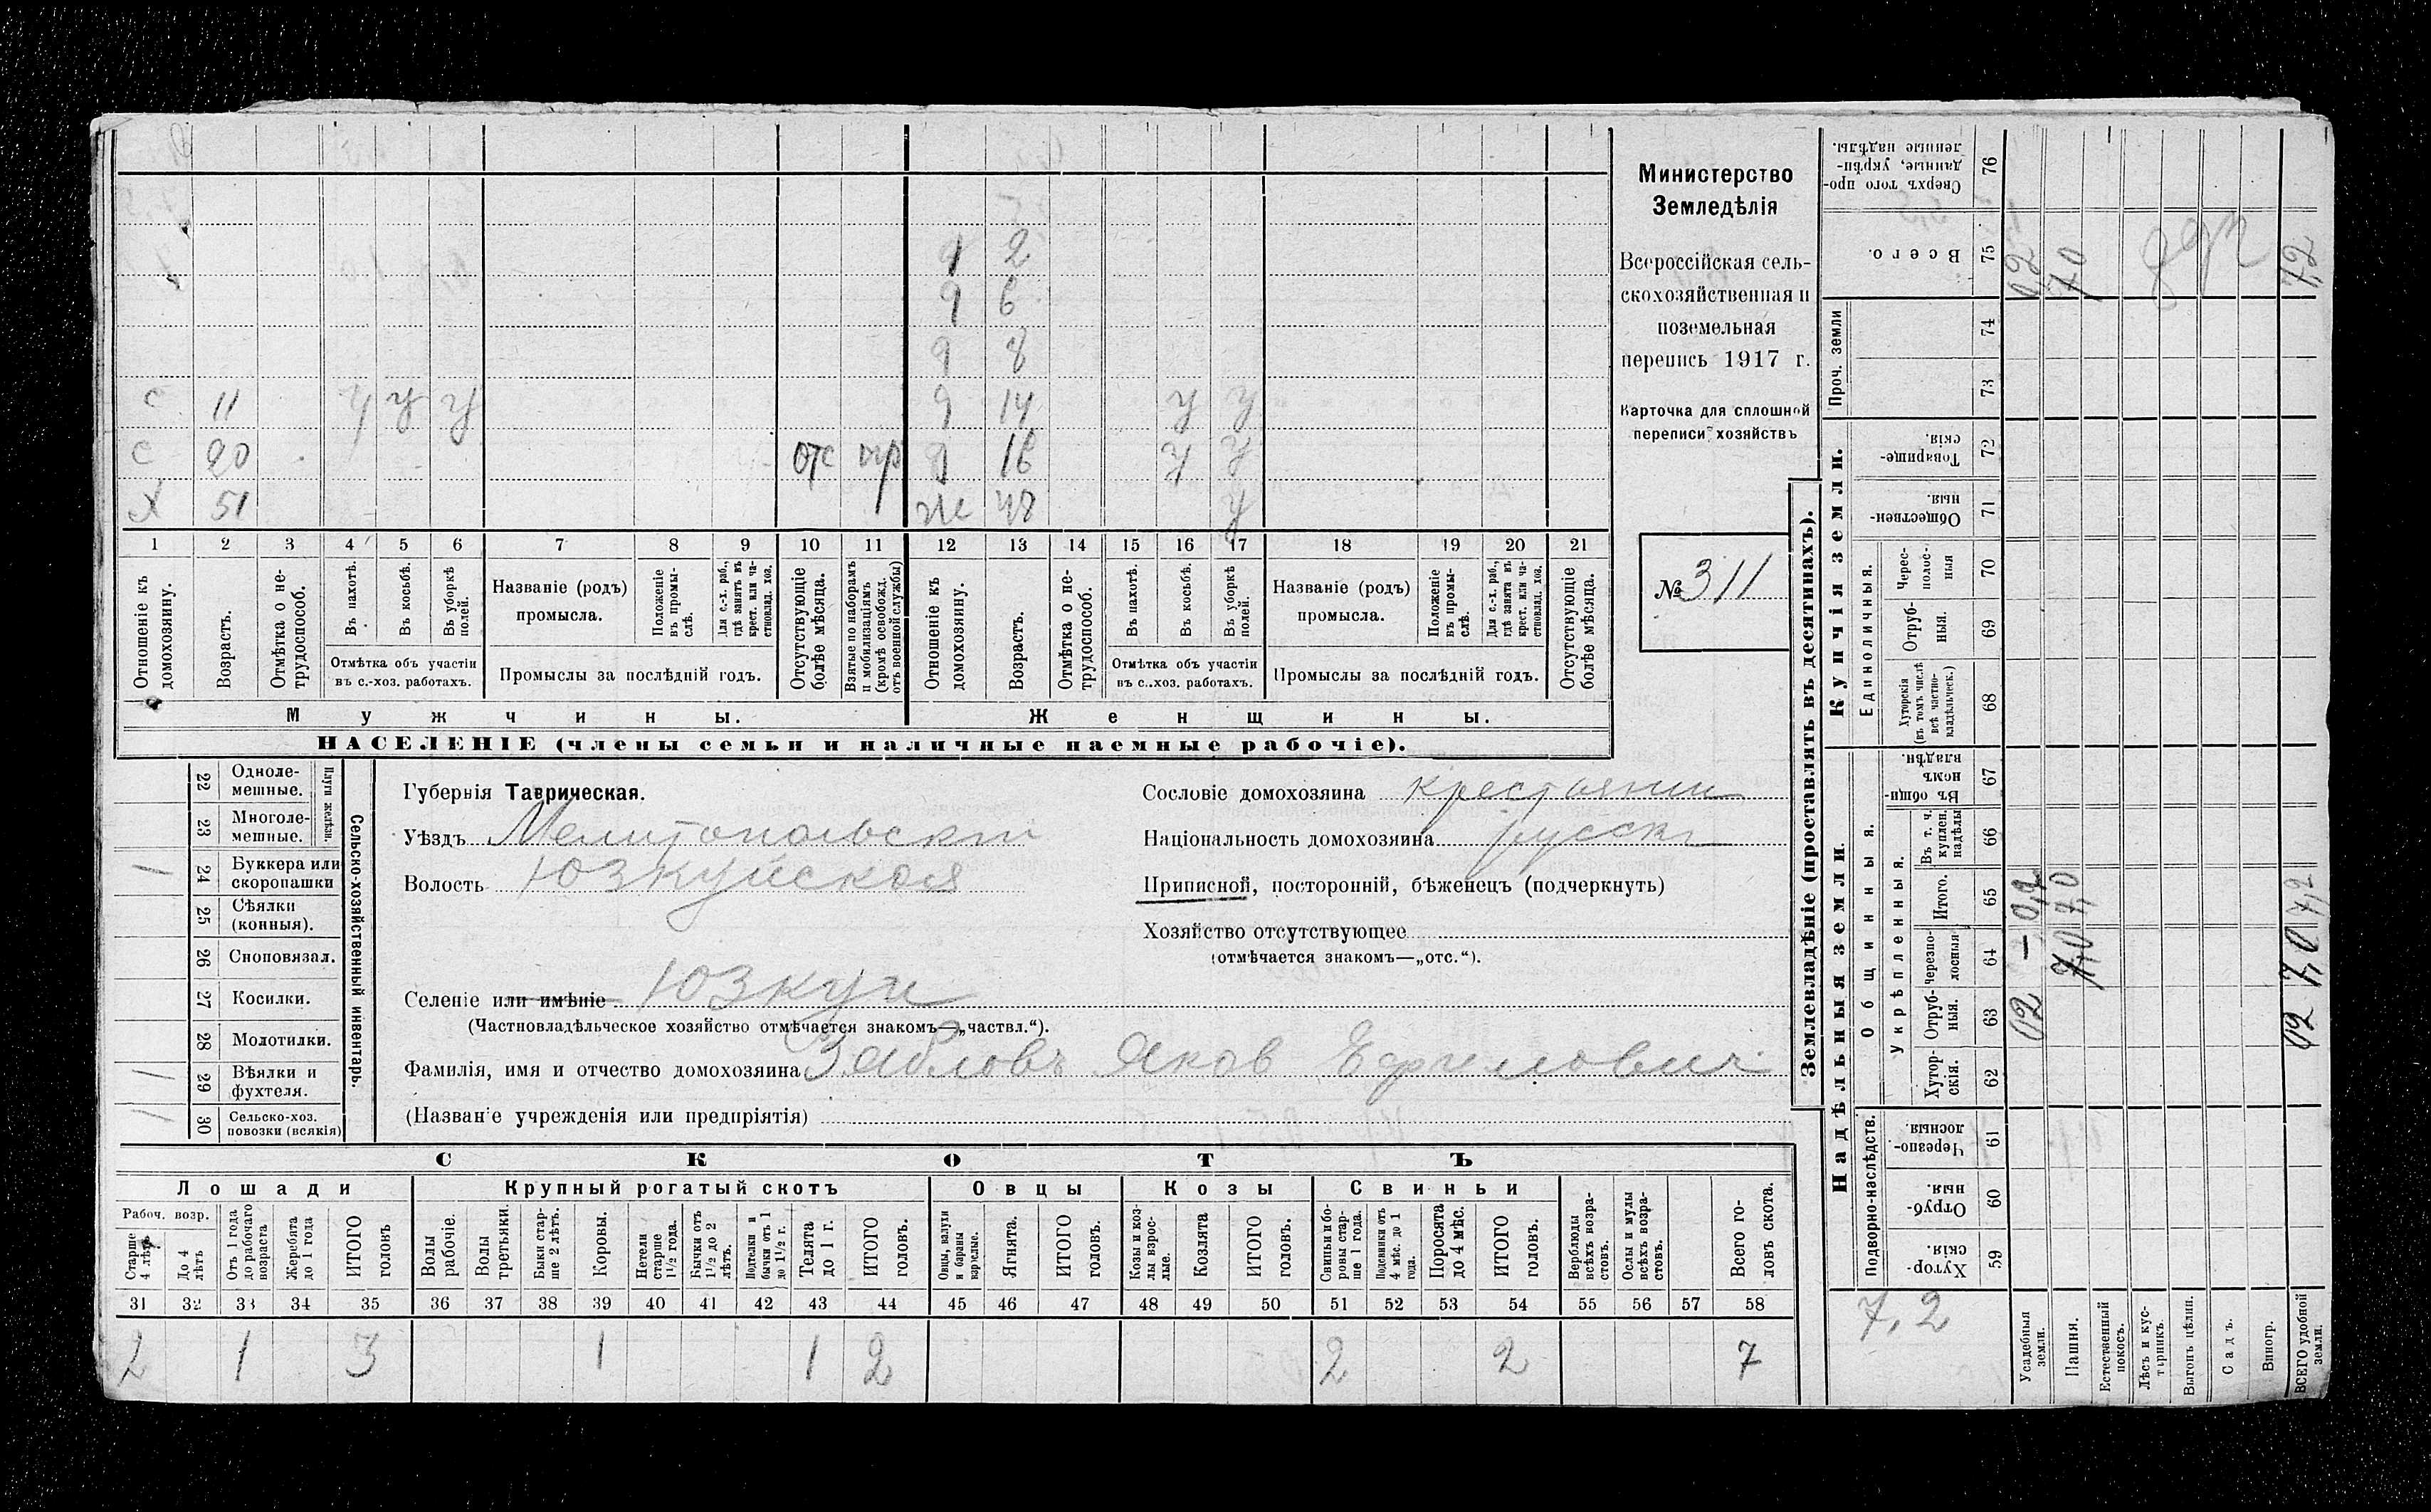 2
д 2
д 6
д 8
с 11 у у у д 14 у у
с 20 отс д 16 у у
х 51 ж 48 у
1 2 3 4 5 6 7 8 9 10 11 12 13 14 15 16 17 18 19 20 21
Отношеніе къ домохозяину.
Возрастъ.
Отмѣтка о не-
трудоспособ.
Въ пахотѣ.
Въ косьбѣ.
Въ уборкѣ
полей.
Отмѣтка объ участіи
въ с.-хоз. работахъ.
Названіе (родъ)
промысла.
Положеніе
въ промы-
слѣ.
Для с.-х. раб.,
гдѣ занятъ въ
крест. или ча-
стновлад. хоз.
Промыслы за послѣдній годъ.
Отсутствующіе
болѣе мѣсяца.
Взятые по наборамъ
и мобилизаціямъ
(кромѣ освобожд.
отъ военной службы)
Отношеніе къ
домохозяину.
Возрастъ.
Отмѣтка о не-
трудоспособ.
Въ пахотѣ.
Въ косьбѣ.
Въ уборкѣ
полей.
Отмѣтка объ участіи
въ с.-хоз. работахъ.
Названіе (родъ)
промысла.
Положеніе
въ промы-
слѣ.
Для с.-х. раб.,
гдѣ занята въ
крест. или ча-
стновлад. хоз.
Промыслы за послѣдній годъ.
Отсутствующіе
болѣе мѣсяца.
Мужчины. Женщины.
НАСЕЛЕНІЕ (члены семьи и наличные наемные рабочіе).
Министерство
Земледѣлія
Всероссійская сель-
скохозяйственная и
поземельная
перепись 1917 г.
Карточка для сплошной
переписи хозяйствъ
№ 311
Сельско-хозяйственный инвентарь.
Плуги желѣзн.
22 Одноле-
мешные.
23 Многоле-
мешные.
1 24 Буккера или
скоропашки
25 Сѣялки
(конныя).
26 Сноповязал.
27 Косилки.
28 Молотилки.
1 29 Вѣялки и
фухтеля.
1 30 Сельско-хоз.
повозки (всякія)
Губернія Таврическая.
Уѣздъ Мелитопольскій
Волость Юзкуйская
Селеніе или имѣніе Юзкуи
(Частновладѣльческое хозяйство отмѣчается знакомъ—„частвл.“).
Фамилія, имя и отчество домохозяина Зябловъ Яков Ефимович
(Названіе учрежденія или предпріятія)
Сословіе домохозяина крестьянин
Національность домохозяина русск
Приписной, посторонній, бѣженецъ (подчеркнуть)
Хозяйство отсутствующее
(отмѣчается знакомъ—„отс.“).
СКОТЪ
Лошади Крупный рогатый скотъ Овцы Козы Свиньи
Рабоч. возр.
Старше
4 лѣтъ
До 4
лѣтъ
Отъ 1 года
до рабочаго
возраста
Жеребята
до 1 года
ИТОГО
головъ
Волы
рабочіе.
Волы
третьяки.
Быки стар-
ше 2 лѣтъ.
Коровы.
Нетели
старше
1½ года.
Бычки отъ
1½ до 2
лѣтъ.
Подтелки и
бычки отъ 1
до 1½ г.
Телята
до 1 г.
ИТОГО
головъ.
Овцы, валухи
и бараны
взрослые.
Ягнята.
ИТОГО
головъ.
Козы и коз-
лы взрос-
лые.
Козлята
ИТОГО
головъ.
Свиньи и бо-
ровы стар-
ше 1 года.
Подсвинки отъ
4 мѣс. до 1
года.
Поросята
до 4 мѣс.
ИТОГО
головъ.
Верблюды
всѣхъ возра-
стовъ.
Ослы и мулы
всѣхъ возра-
стовъ.
Всего го-
ловъ скота.
31 32 33 34 35 36 37 38 39 40 41 42 43 44 45 46 47 48 49 50 51 52 53 54 55 56 57 58
2 1 3 1 1 2 2 2 7
Землевладѣніе (проставлять въ десятинахъ).
Купчія земли.
Надѣльныя земли.
Сверхъ того про-
данные, укрѣп-
ленные надѣлы.
76
Всего. 75 0,2 7,0 7,2
Проч. земли
74
73
Товарище-
скія.
72
Обществен-
ныя.
71
Единоличныя.
Черес-
полос-
ныя
70
Отруб-
ныя.
69
Хуторскія
(въ томъ числѣ
всѣ частно-
владѣльческ.)
68
Общинныя.
Въ общи-
номъ
владѣн.
67
Укрѣпленныя.
Въ т. ч.
куплен.
надѣлы
66
Итого. 65 0,2 7,0 7,2
Черезпо-
лосныя
64 – 7,0 7,0
Отруб-
ныя.
63 02 02
Хутор-
скія.
62
Подворно-наслѣдств.
Черезпо-
лосныя.
61
Отруб-
ныя.
60
Хутор-
скія.
59
7,2
Усадебныя
земли.
Пашня.
Естественный
покосъ.
Лѣсъ и кус-
тарникъ.
Выгонъ цѣлин.
Садъ.
Виногр.
ВСЕГО удобной
земли.